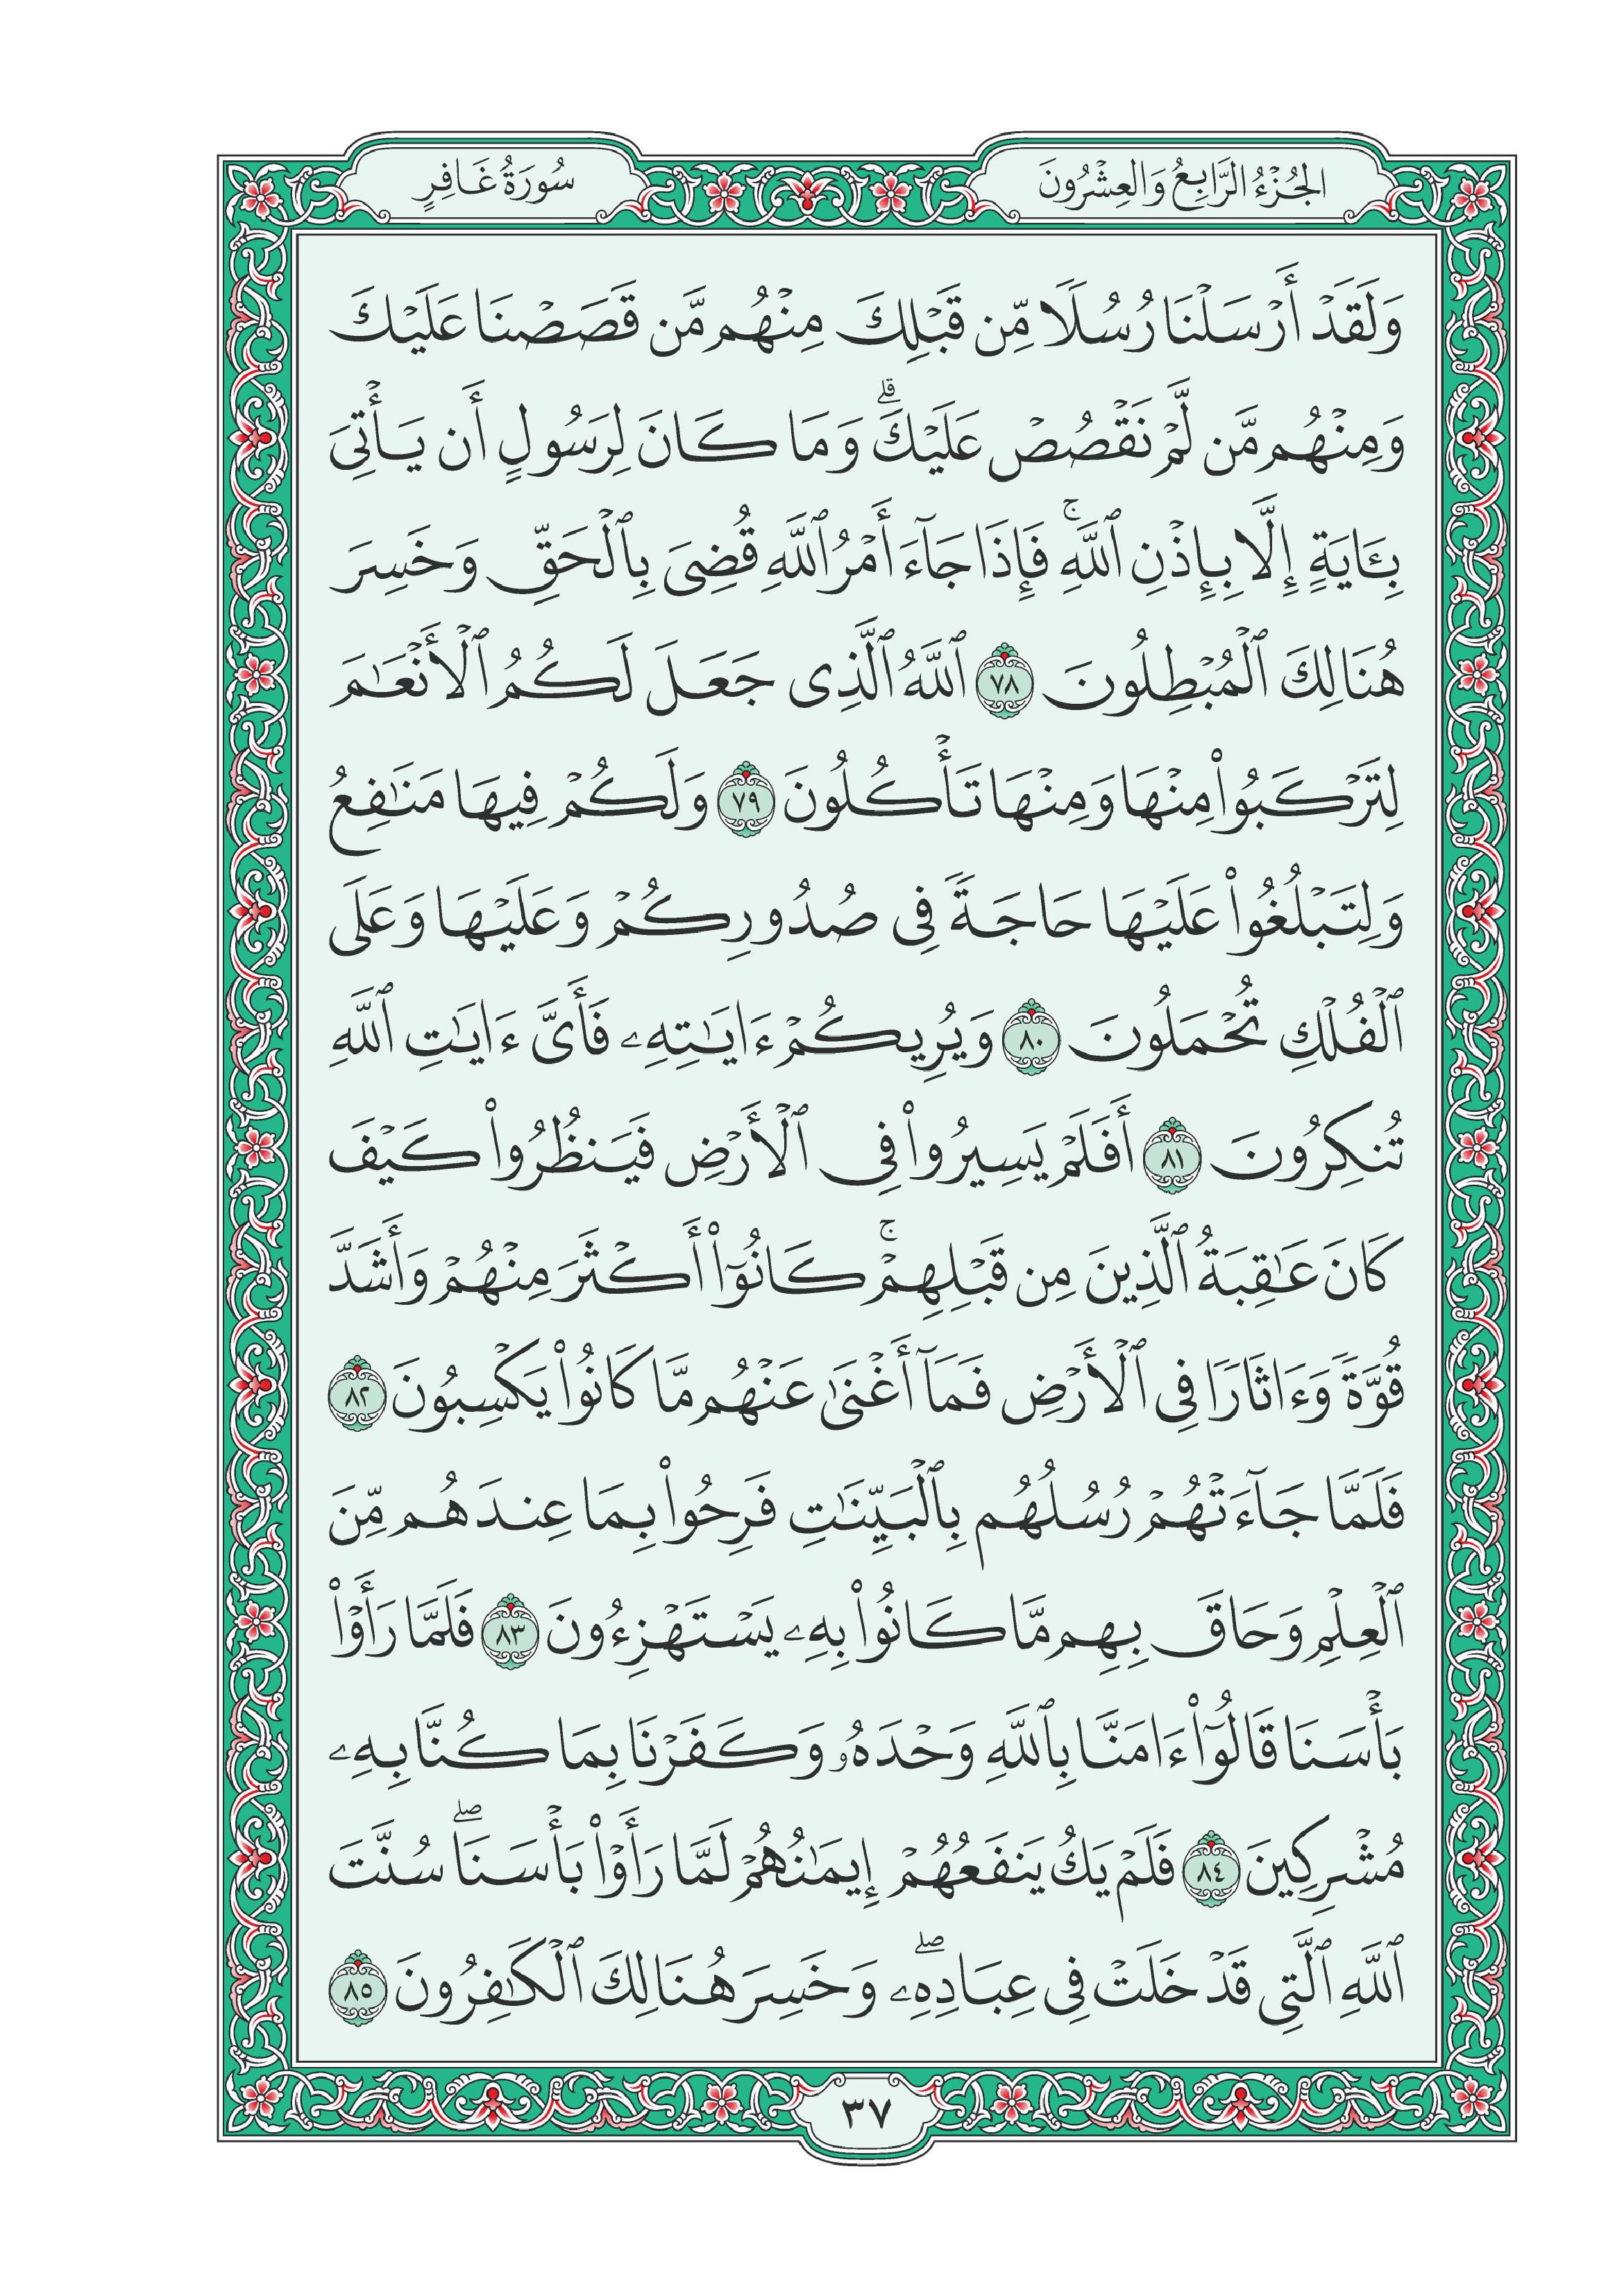 الجُزْءُ الرَّابِعُ وَالعِشْرُونَ
سُورَةُ غَافِرٍ
وَلَقَدۡ أَرۡسَلۡنَا رُسُلٗا مِّن قَبۡلِكَ مِنۡهُم مَّن قَصَصۡنَا عَلَيۡكَ
وَمِنۡهُم مَّن لَّمۡ نَقۡصُصۡ عَلَيۡكَۗ وَمَا كَانَ لِرَسُولٍ أَن يَأۡتِيَ
بِـَٔايَةٍ إِلَّا بِإِذۡنِ ٱللَّهِۚ فَإِذَا جَآءَ أَمۡرُ ٱللَّهِ قُضِيَ بِٱلۡحَقِّ وَخَسِرَ
هُنَالِكَ ٱلۡمُبۡطِلُونَ ٧٨ ٱللَّهُ ٱلَّذِي جَعَلَ لَكُمُ ٱلۡأَنۡعَٰمَ
لِتَرۡكَبُواْ مِنۡهَا وَمِنۡهَا تَأۡكُلُونَ ٧٩ وَلَكُمۡ فِيهَا مَنَٰفِعُ
وَلِتَبۡلُغُواْ عَلَيۡهَا حَاجَةٗ فِي صُدُورِكُمۡ وَعَلَيۡهَا وَعَلَى
ٱلۡفُلۡكِ تُحۡمَلُونَ ٨٠ وَيُرِيكُمۡ ءَايَٰتِهِۦ فَأَيَّ ءَايَٰتِ ٱللَّهِ
تُنكِرُونَ ٨١ أَفَلَمۡ يَسِيرُواْ فِي ٱلۡأَرۡضِ فَيَنظُرُواْ كَيۡفَ
كَانَ عَٰقِبَةُ ٱلَّذِينَ مِن قَبۡلِهِمۡۚ كَانُوٓاْ أَكۡثَرَ مِنۡهُمۡ وَأَشَدَّ
قُوَّةٗ وَءَاثَارٗا فِي ٱلۡأَرۡضِ فَمَآ أَغۡنَىٰ عَنۡهُم مَّا كَانُواْ يَكۡسِبُونَ ٨٢
فَلَمَّا جَآءَتۡهُمۡ رُسُلُهُم بِٱلۡبَيِّنَٰتِ فَرِحُواْ بِمَا عِندَهُم مِّنَ
ٱلۡعِلۡمِ وَحَاقَ بِهِم مَّا كَانُواْ بِهِۦ يَسۡتَهۡزِءُونَ ٨٣ فَلَمَّا رَأَوۡاْ
بَأۡسَنَا قَالُوٓاْ ءَامَنَّا بِٱللَّهِ وَحۡدَهُۥ وَكَفَرۡنَا بِمَا كُنَّا بِهِۦ
مُشۡرِكِينَ ٨٤ فَلَمۡ يَكُ يَنفَعُهُمۡ إِيمَٰنُهُمۡ لَمَّا رَأَوۡاْ بَأۡسَنَاۖ سُنَّتَ
ٱللَّهِ ٱلَّتِي قَدۡ خَلَتۡ فِي عِبَادِهِۦۖ وَخَسِرَ هُنَالِكَ ٱلۡكَٰفِرُونَ ٨٥
٣٧